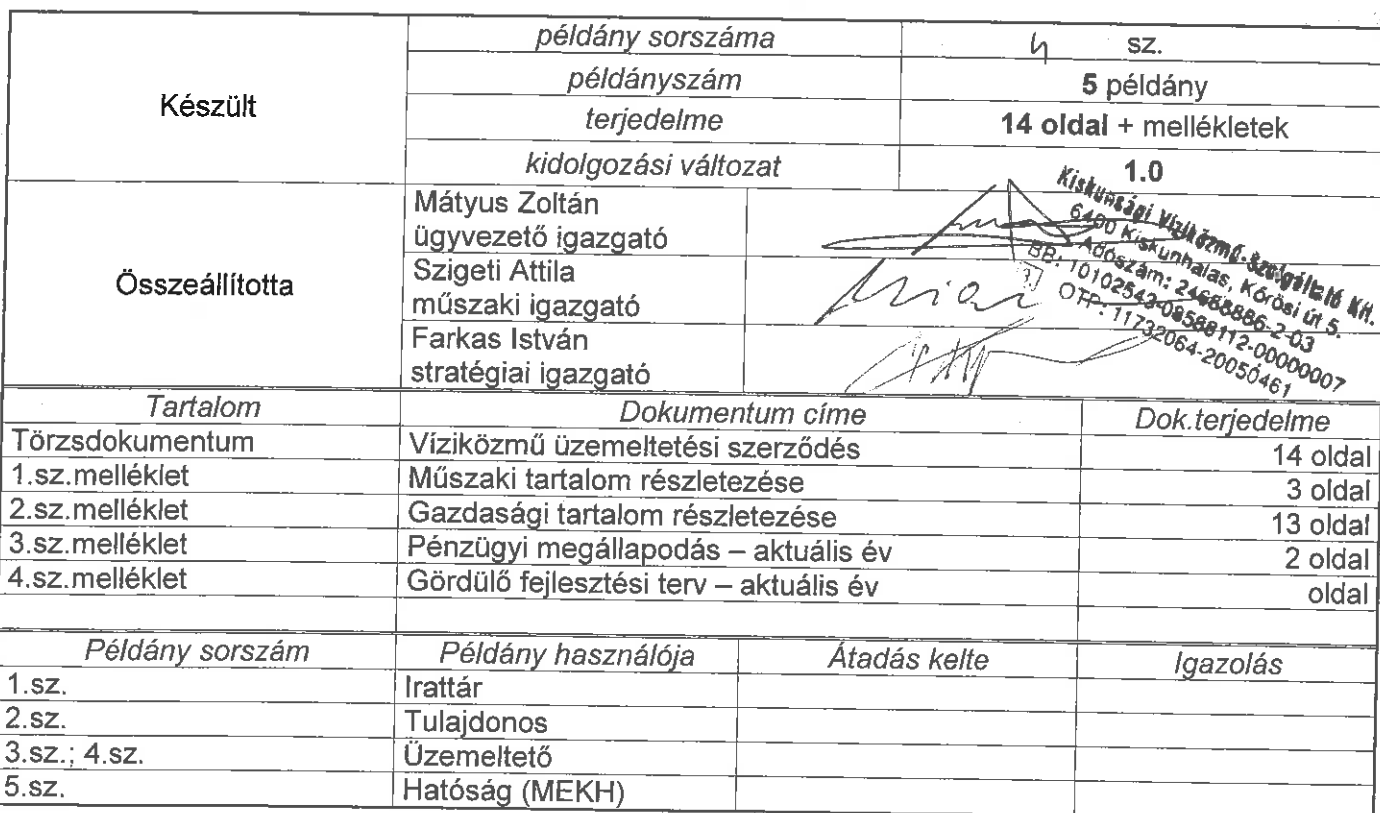 Készült
példány sorszáma
4 sz.
példányszám
5 példány
terjedelme
14 oldal + mellékletek
kidolgozási változat
1.0
Összeállította
Mátyus Zoltán
ügyvezető igazgató
Szigeti Attila
műszaki igazgató
Farkas István
stratégiai igazgató
Kiskunsági Víziközmű-Szolgáltató Kft.
6400 Kiskunhalas, Kőrösi út 5.
Adószám: 24688886-2-03
BB: 10102543-08588112-00000007
OTP: 11732064-20050461
Tartalom Dokumentum címe Dok.terjedelme
Törzsdokumentum Víziközmű üzemeltetési szerződés 14 oldal
1.sz.melléklet Műszaki tartalom részletezése 3 oldal
2.sz.melléklet Gazdasági tartalom részletezése 13 oldal
3.sz.melléklet Pénzügyi megállapodás – aktuális év 2 oldal
4.sz.melléklet Gördülő fejlesztési terv – aktuális év oldal
Példány sorszám Példány használója Átadás kelte Igazolás
1.sz. Irattár
2.sz. Tulajdonos
3.sz.; 4.sz. Üzemeltető
5.sz. Hatóság (MEKH)